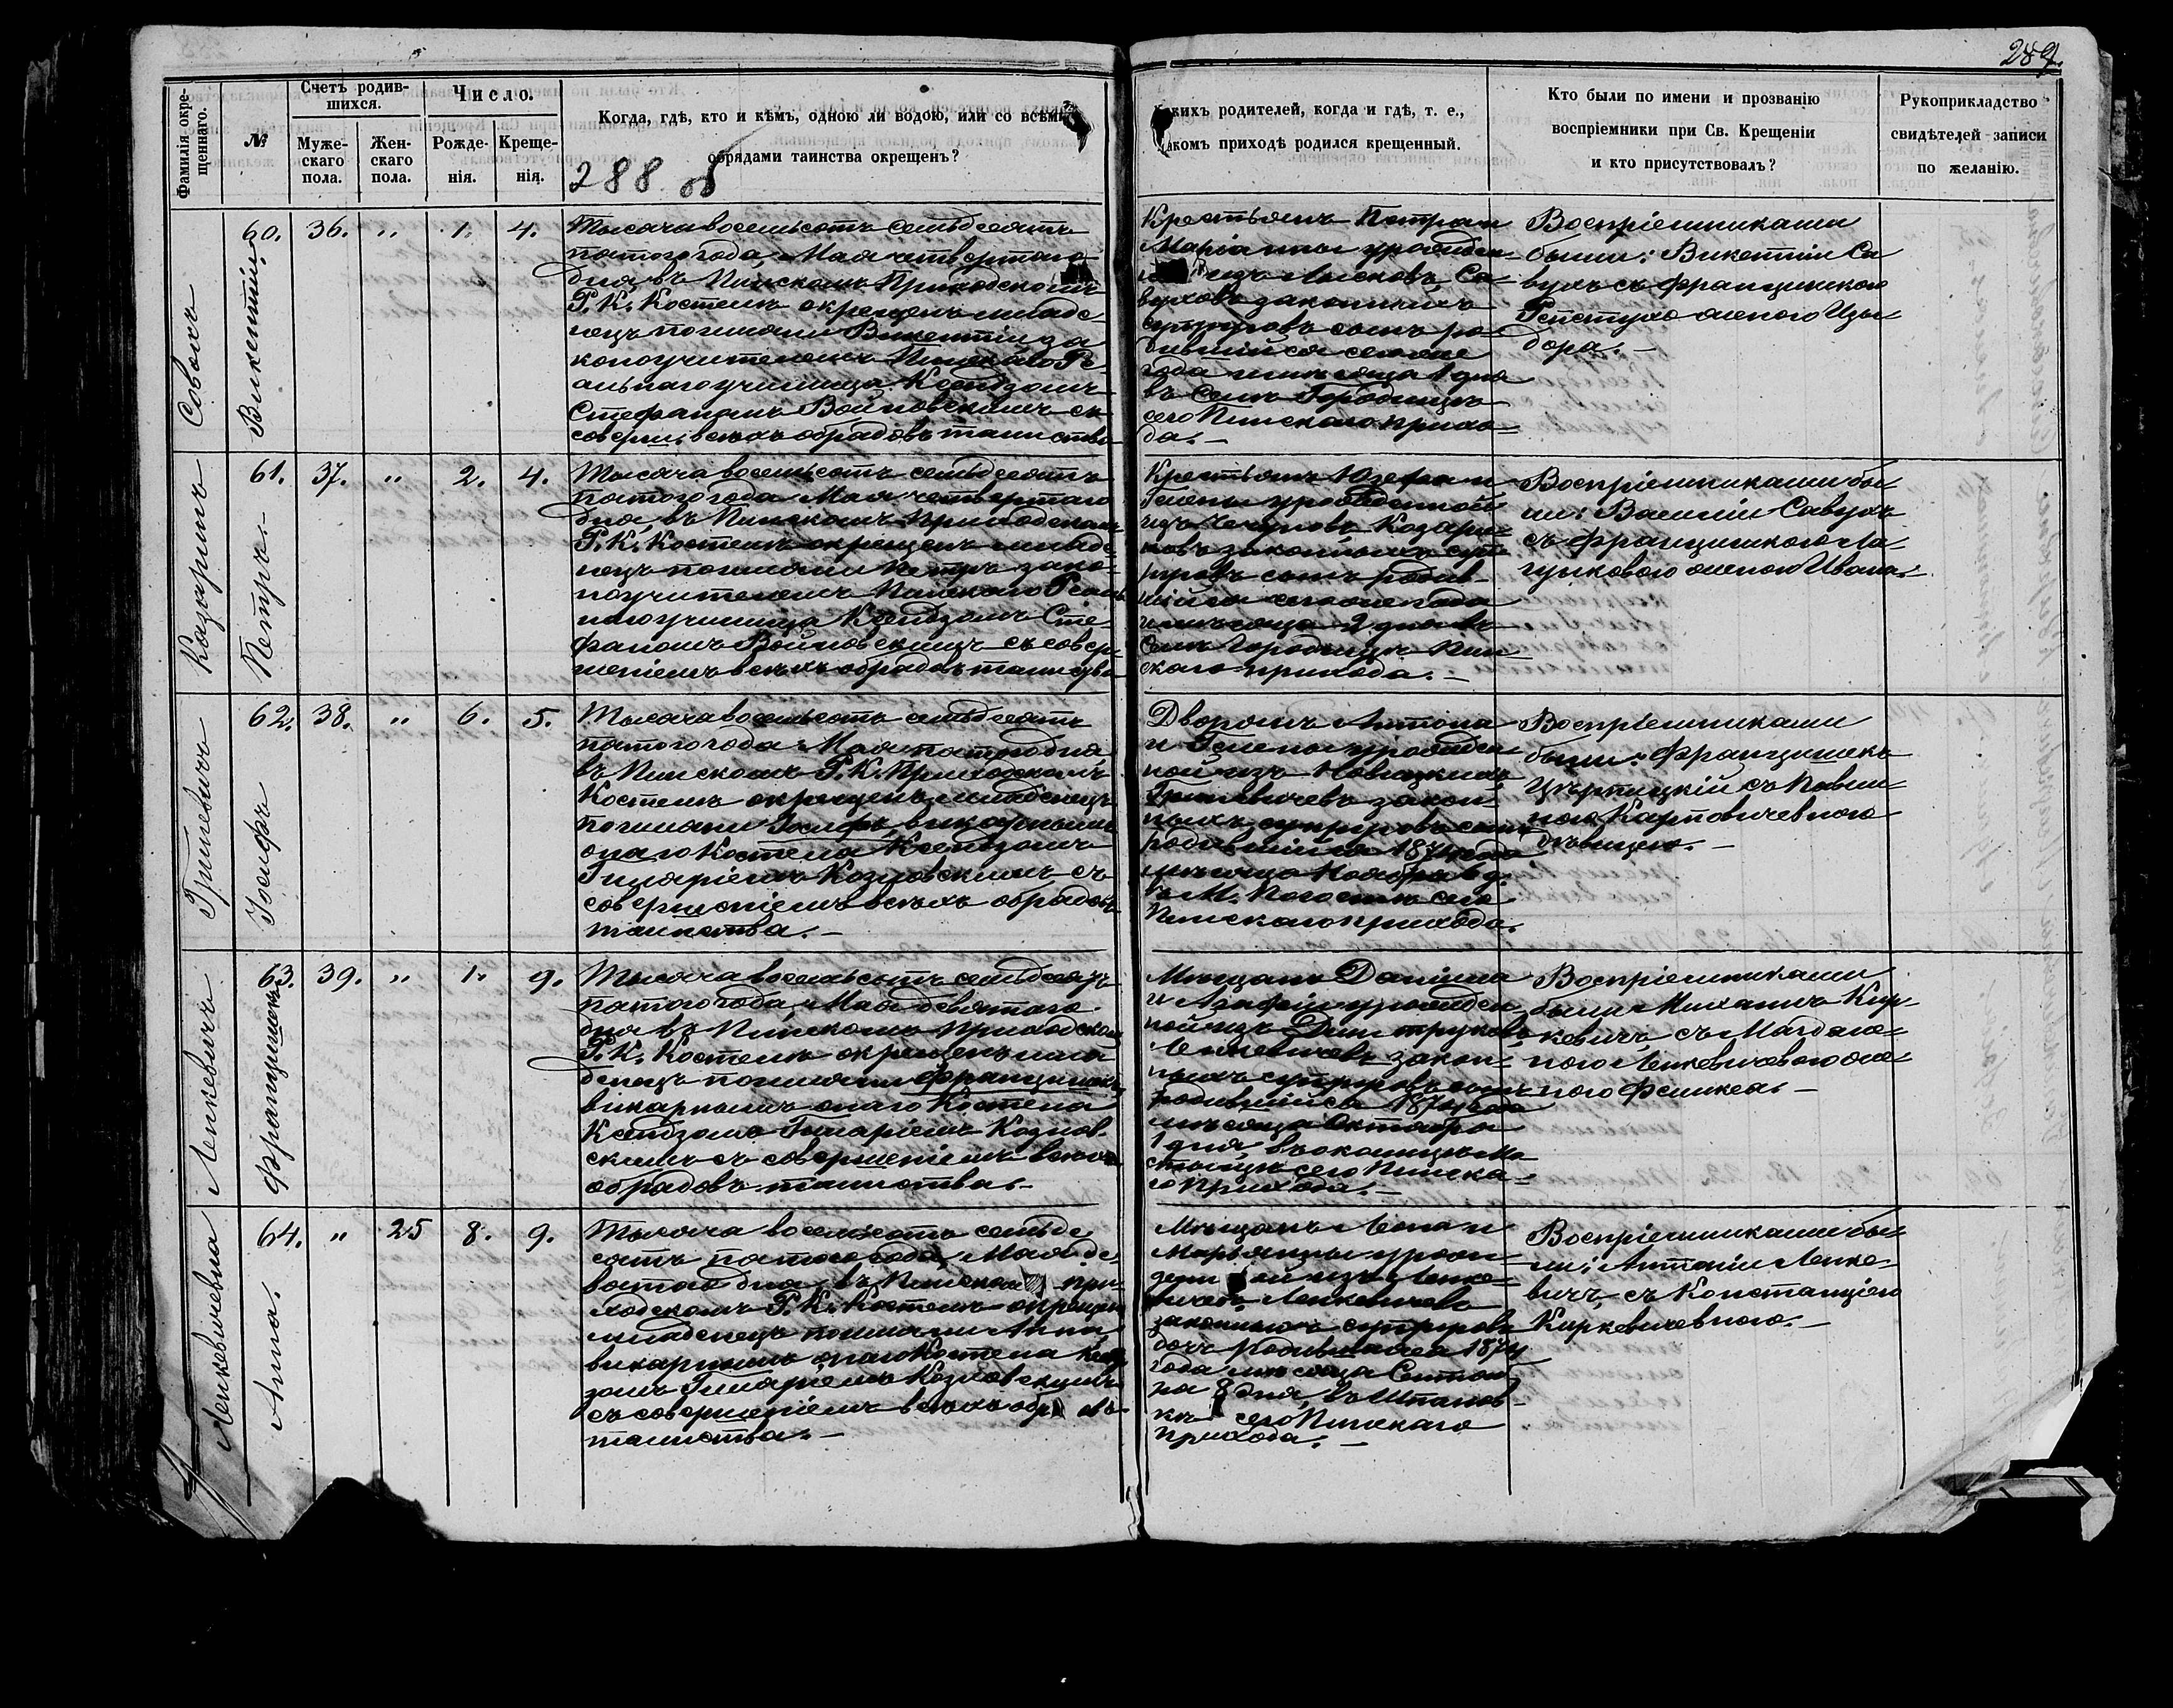 289.
Фамилія окре-
щеннаго.
№
Счетъ родив-
шихся.
Муже-
скаго
пола.
Жен-
скаго
пола.
Число.
Рожде-
нія.
Креще-
нія.
Когда, гдѣ, кто и кѣмъ, одною ли водою, или со всѣми
обрядами таинства окрещенъ?
288 об
Какихъ родителей, когда и гдѣ, т. е.,
какомъ приходѣ родился крещенный.
Кто были по имени и прозванію
воспріемники при Св. Крещеніи
и кто присутствовалъ?
Рукоприкладство
свидѣтелей записи
по желанію.
Викентій.
60. 36. " 1. 4.
Тысяча восемьсотъ семьдесятъ
пятого года, Мая четвертого
дня, въ Пинскомъ Приходскомъ
Р. К. Костелѣ окрещенъ младе-
нецъ по имени Викентій за
коноучителемъ Пинскаго Ре-
альнаго училища Ксендзомъ
Стефаномъ Войновскимъ съ
соверш: всѣхъ обрядовъ таинства
Крестьянъ Петра и
Маріанны урожден-
изъ Лысковъ, Са-
вуховъ законныхъ
супруговъ сынъ ро-
дившійся сего же
года и мѣсяца 1 дня
въ Селѣ Городищѣ
сего Пинскаго прихо-
да.—
Воспріемниками
были: Викентій Са
вухъ съ Францишкою
женою Изы-
дора.—
Казаринъ
Петръ.—
61. 37. " 2. 4.
Тысяча восемьсотъ семьдесятъ
пятого года Мая четвертаго
дня, въ Пинскомъ Приходскомъ
Р. К. Костелѣ окрещенъ младе-
нецъ по имени Петръ зако-
ноучителемъ Пинскаго Реаль
наго училища Ксендзомъ Сте-
фаномъ Войновскимъ съ совер-
шеніемъ всѣхъ обрядовъ таинства
Крестьянъ Юзефа и
Гелены урожденной
изъ Казари-
новъ законныхъ суп-
руговъ сынъ родив-
шійся сего же года
и мѣсяца 2 дня въ
Селѣ Городищѣ Пин
скаго прихода.—
Воспріемниками бы-
ли: Василій Савухъ
съ Францишкою Ла-
гунковою женою Ивана.—
Гриневичъ
Іосифъ
62. 38. " 6. 5.
Тысяча восемьсотъ семьдесятъ
пятого года Мая пятого дня
въ Пинскомъ Р. К. Приходскомъ
Костелѣ окрещенъ младенецъ
по имени Іосифъ викарнымъ
онаго Костела Ксендзомъ
Гиляріемъ Козловскимъ съ
совершеніемъ всѣхъ обрядовъ
таинства.—
Дворянъ Антона
и Гелены урожден
ной изъ Новицкихъ
Гриневичевъ закон-
ныхъ супруговъ сынъ
родившійся 1874 года
мѣсяца Ноября 6 д.
въ М. Погостѣ сего
Пинскаго прихода.
Воспріемниками
были: Францишекъ
съ Павли-
ною Карповичевною
дѣвицею.—
Ленкевичъ
Францишекъ
63. 39. " 1. 9.
Тысяча восемьсотъ семьдесятъ
пятого года, Мая девятого
дня въ Пинскомъ Приходскомъ
Р. К. Костелѣ окрещенъ мла
денецъ по имени Францишекъ
викарнымъ онаго Костела
Ксендзомъ Гиляріемъ Козлов-
скимъ съ совершеніемъ всѣхъ
обрядовъ таинства.—
Мѣщанъ Даніила
и Агафіи урожден-
ной изъ Дмитруковъ
Ленкевичевъ закон-
ныхъ супруговъ сынъ
родившійся 1874 года
мѣсяца Октября
1 дня, въ околицѣ
сего Пинска-
го Прихода.—
Воспріемниками
были Михаилъ Кир-
кевичъ, съ Магдале-
ною Ленкевичевою же-
ною Феликса.—
Ленкевичевна
Анна.
64. " 25 8. 9.
Тысяча восемьсотъ семьде
сятъ пятого года, Мая де-
вятаго дня, въ Пинскомъ при-
ходскомъ Р. К. Костелѣ окрещенъ
младенецъ по имени Анна
викарнымъ онаго Костела Ксен
зомъ Гиляріемъ Козловскимъ
съ совершеніемъ всѣхъ обрядовъ
таинства.—
Мѣщанъ Леона и
Марьянны урож-
денной изъ Ленке-
вичевъ Ленкевичевъ
законныхъ супруговъ
дочь родившаяся 1874
года мѣсяца Сентяб-
ря 8 дня, въ
сего Пинскаго
прихода.—
Воспріемниками бы-
ли: Антоній Ленке-
вичъ, съ Констанціею
Киркевичевною.—